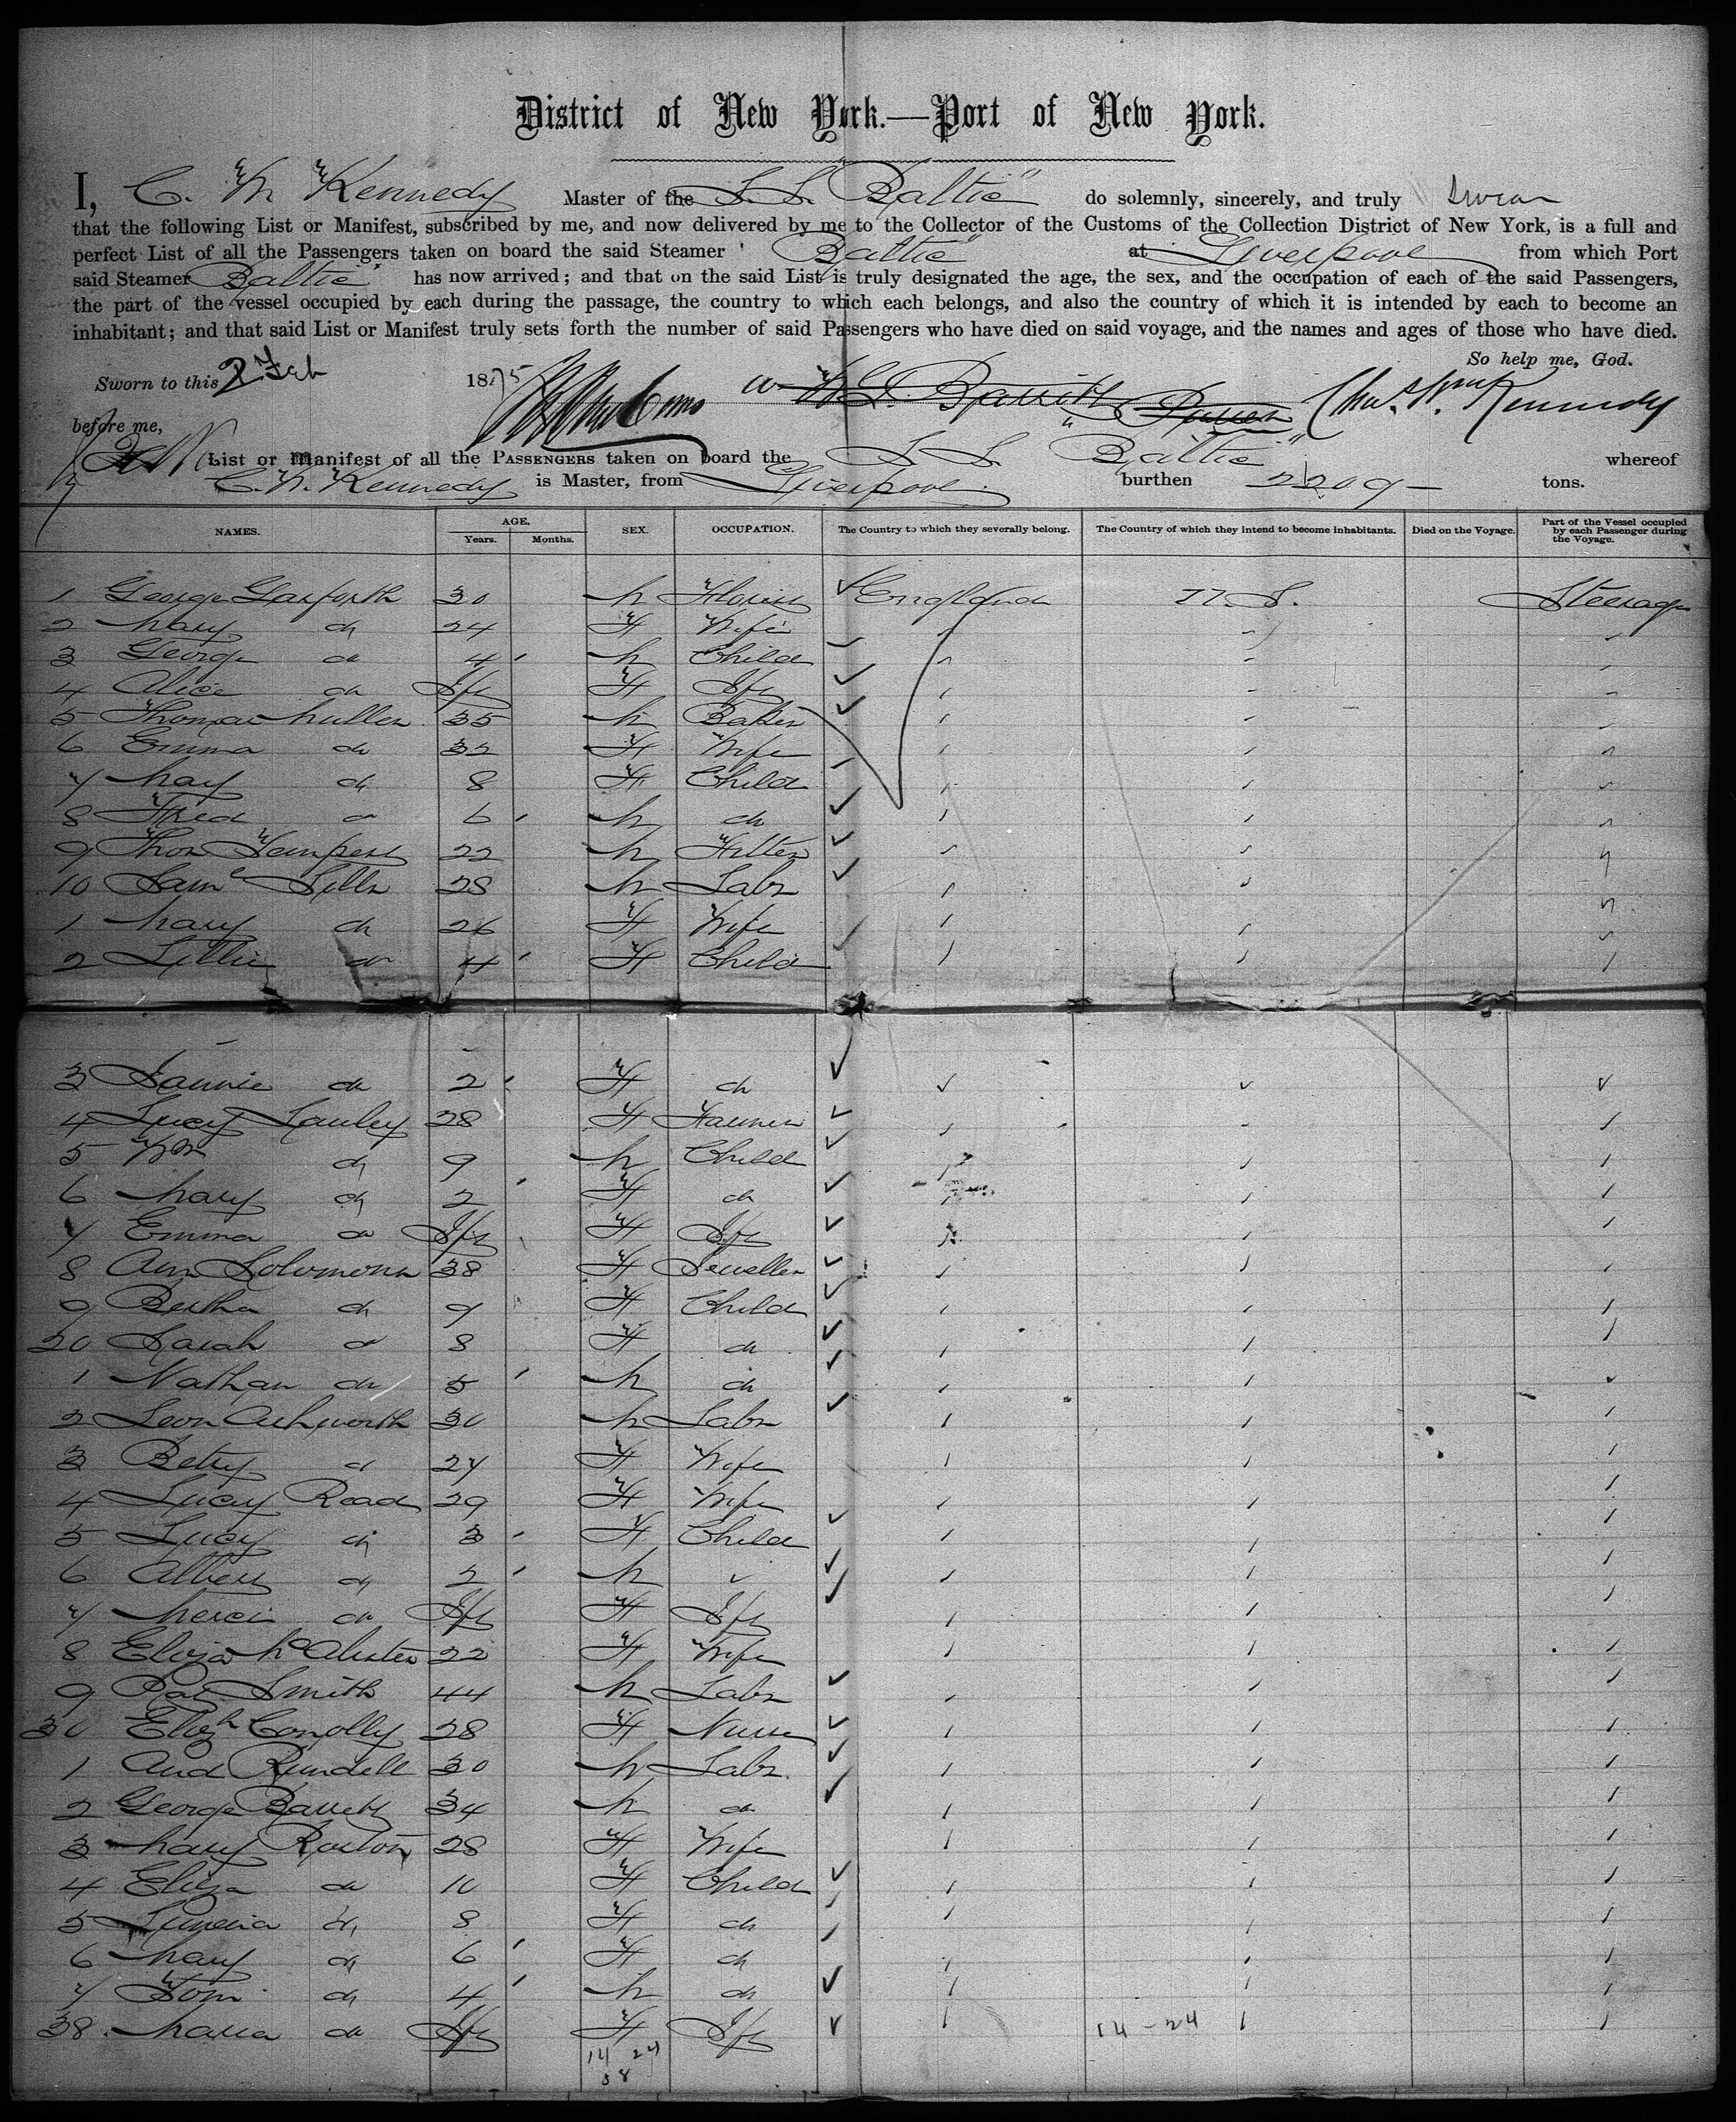 District of New York.—Port of New York.
I, C. W. Kennedy Master of the S.S. "Baltic" do solemnly, sincerely, and truly swear
that the following List or Manifest, subscribed by me, and now delivered by me to the Collector of the Customs of the Collection District of New York, is a full and
perfect List of all the Passengers taken on board the said Steamer "Baltic" at Liverpool from which Port
said Steamer "Baltic" has now arrived; and that on the said List is truly designated the age, the sex, and the occupation of each of the said Passengers,
the part of the vessel occupied by each during the passage, the country to which each belongs, and also the country of which it is intended by each to become an
inhabitant; and that said List or Manifest truly sets forth the number of said Passengers who have died on said voyage, and the names and ages of those who have died.
So help me, God.
Sworn to this 2 Feb 1875 Chas. W. Kennedy
before me,
List or Manifest of all the PASSENGERS taken on board the S.S. "Baltic" whereof
C. W. Kennedy is Master, from Liverpool burthen 2209 tons.
NAMES. AGE. Years. Months. SEX. OCCUPATION. The Country to which they severally belong. The Country of which they intend to become inhabitants. Died on the Voyage. Part of the Vessel occupied by each Passenger during the Voyage.
1 George Garforth 30 M Florist England U.S. Steerage
2 Mary do 24 F Wife
3 George do 4 M Child
4 Alice do Inft F Inft
5 Thomas Mullen 35 M Baker
6 Emma do 32 F Wife
7 May do 8 F Child
8 Fred do 6 M do
9 Thos 22 M Fitter
10 Saml Sills 28 M Labr
1 Mary do 26 F Wife
2 Lillie do 4 F Child
3 Fannie do 2 F do
4 Lucy 28 F
5 Wm do 9 M Child
6 Mary do 2 F do
7 Emma do Inft F Inft
8 Ann Solomons 38 F
9 Bertha do 9 F Child
20 Sarah do 8 F do
1 Nathan do 5 M do
2 Leon Ashworth 30 M Labr
3 Betsy do 27 F Wife
4 Lucy Road 29 F Wife
5 Lucy do 3 F Child
6 Albert do 2 M
7 do Inft F Inft
8 Eliza McAlister 22 F Wife
9 Pat Smith 44 M Labr
30 Elizh Conolly 28 F Nurse
1 And Rundell 30 M Labr
2 George Barrett 34 M do
3 Mary 28 F Wife
4 Eliza do 10 F Child
5 do 8 F do
6 Mary do 6 F do
7 Tom do 4 M do
38 Maria do Inft F Inft
14 24
38
14-24